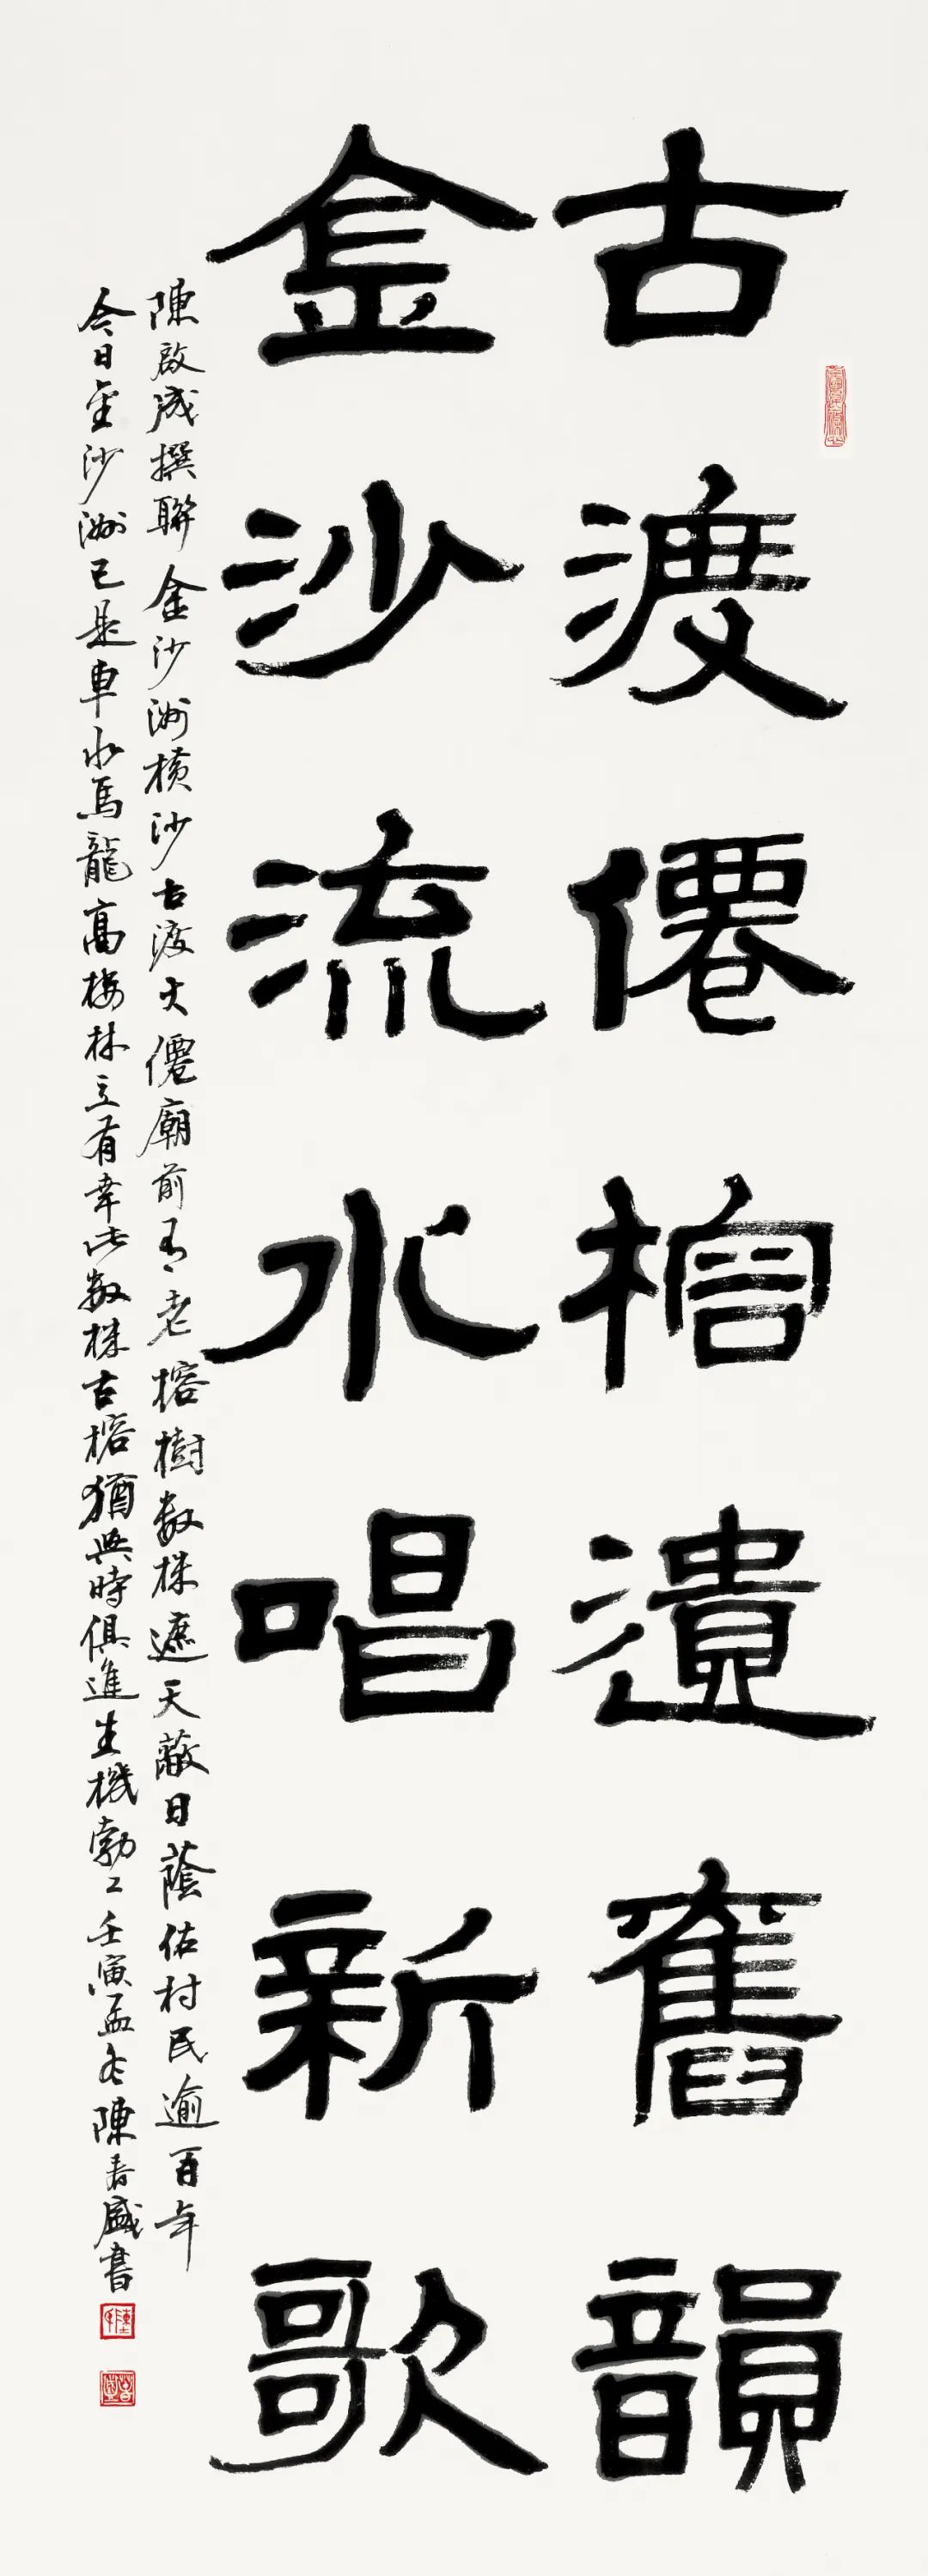 古渡僊榕遺舊韻
金沙流水唱新歌
陳啟成撰聯金沙洲橫沙古渡大僊廟前有老榕樹數株遮天蔽日蔭佑村民逾百年
今日金沙洲已是車水馬龍高樓林立有幸此數株古榕猶與時俱進生機勃々壬寅孟冬陳春盛書